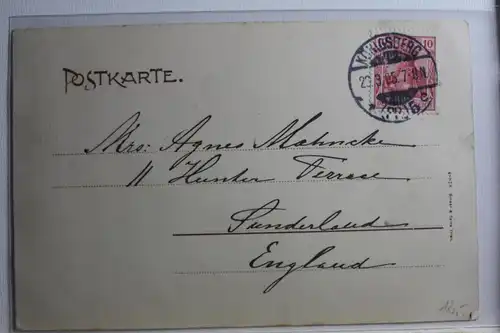 POSTKARTE.
10
KÖNIGSBERG
Mrs: Agnes Mahncke
11 Hunter Terrase
Sunderland
England